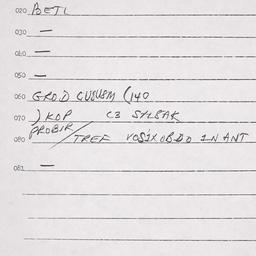 020 BETL
030 —
040 —
050 —
060 GROD CUSUSM (140
070 ) KOP C3 SYLSAK
PROBIR
080 / TREF VOSIXOBDO IN ANT
081 —